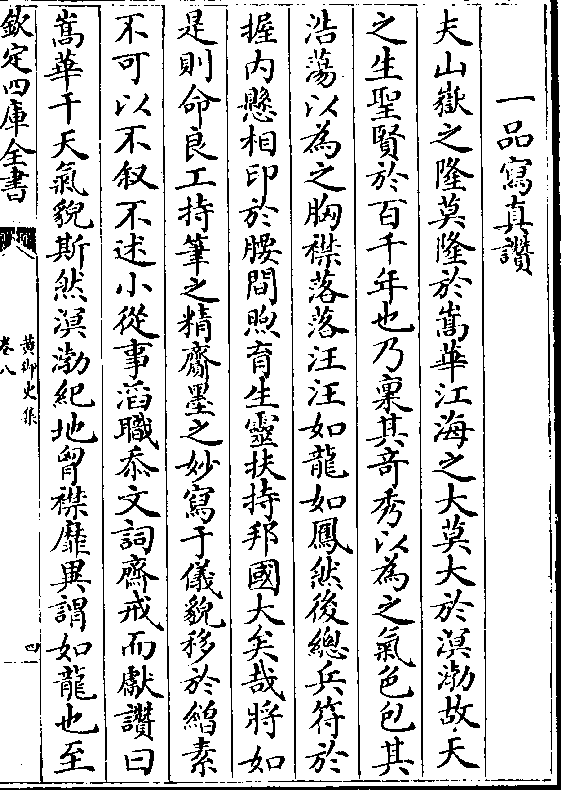 一品寫真讚
夫山嶽之隆莫隆於嵩華江海之大莫大於溟渤故天
之生聖賢於百千年也乃稟其竒秀以為之氣色包其
浩蕩以為之胸襟落落汪汪如龍如鳳然後總兵符於
握内懸相印於腰間煦育生靈扶持邦國大矣哉將如
是則命良工持筆之精齎墨之妙寫于儀貌移於繒素
不可以不叙不述小從事滔職忝文詞齋戒而獻讚曰
嵩華干天氣貌斯然溟渤紀地胷襟靡異謂如龍也至
欽定四庫全書
黄御史集
卷八
四